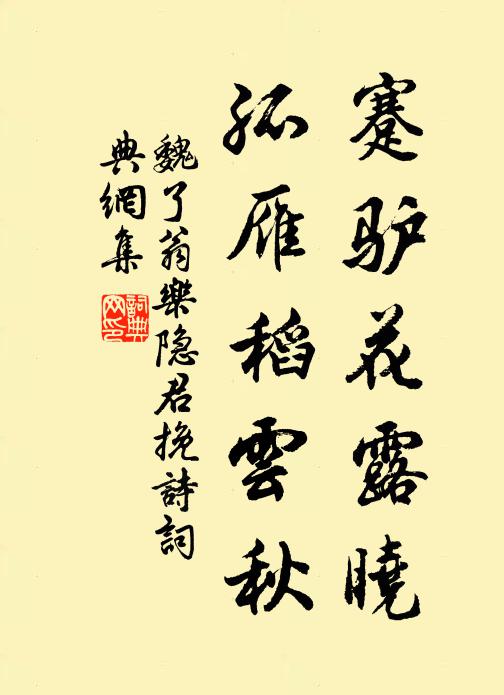 蹇驴花露曉
孤雁稻雲秋
魏了翁樂隐君挽詩詞
典網集
詞典网印